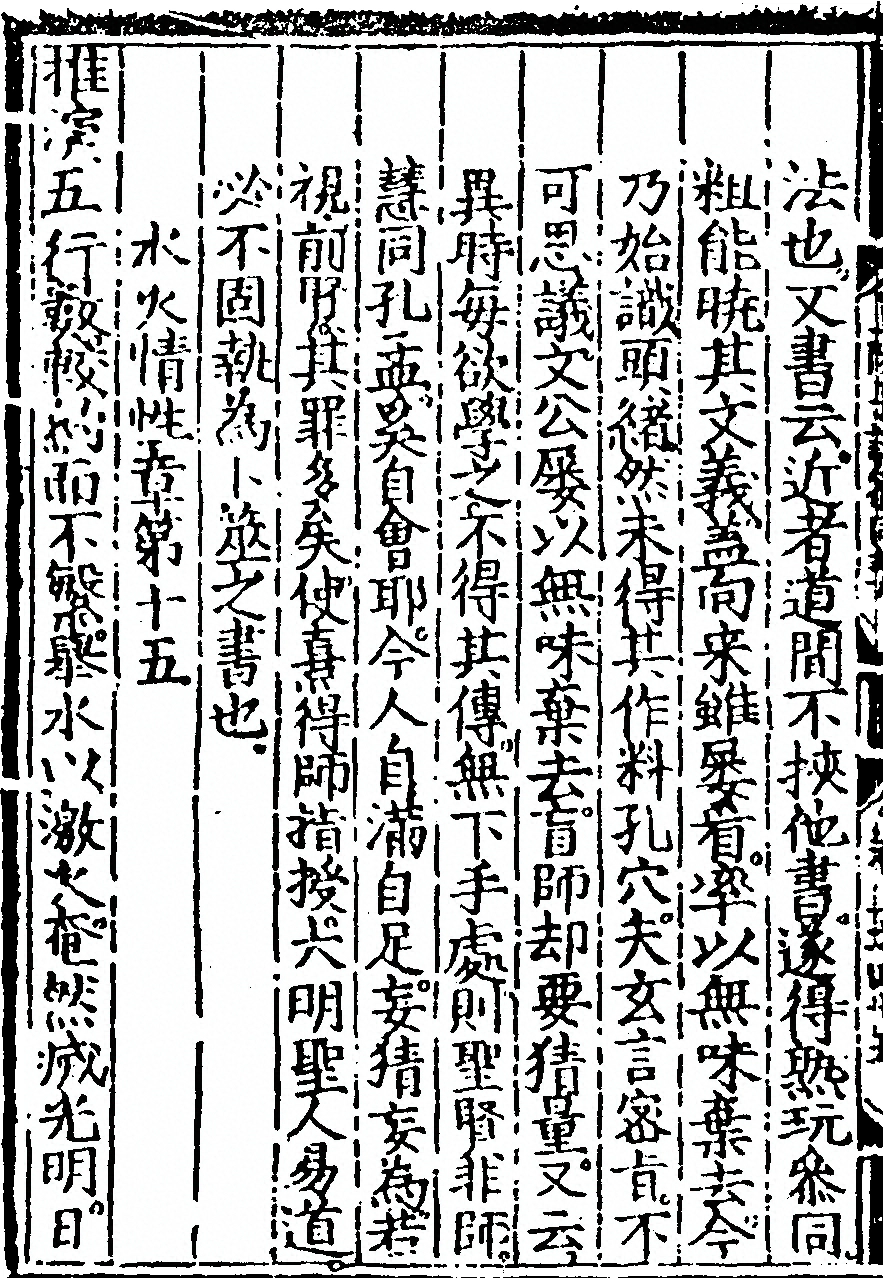 法也又書云近者道間不挾他書遂得熟玩叅同
粗能曉其文義盖向来雖屡看率以無味棄去今
乃始識頭緒然未得其作料孔穴夫玄言密旨不
可思議文公屡以無味棄去盲師却要猜量又云
異時每欲學之不得其傳無下手處則聖賢非師
慧同孔孟奚自會耶今人自滿自足妄猜妄為若
視前賢其罪多矣使熹得師指授大明聖人易道
必不固執為卜筮之書也
水火情性章第十五
推演五行數較約而不繁舉水以激火奄然滅光明日